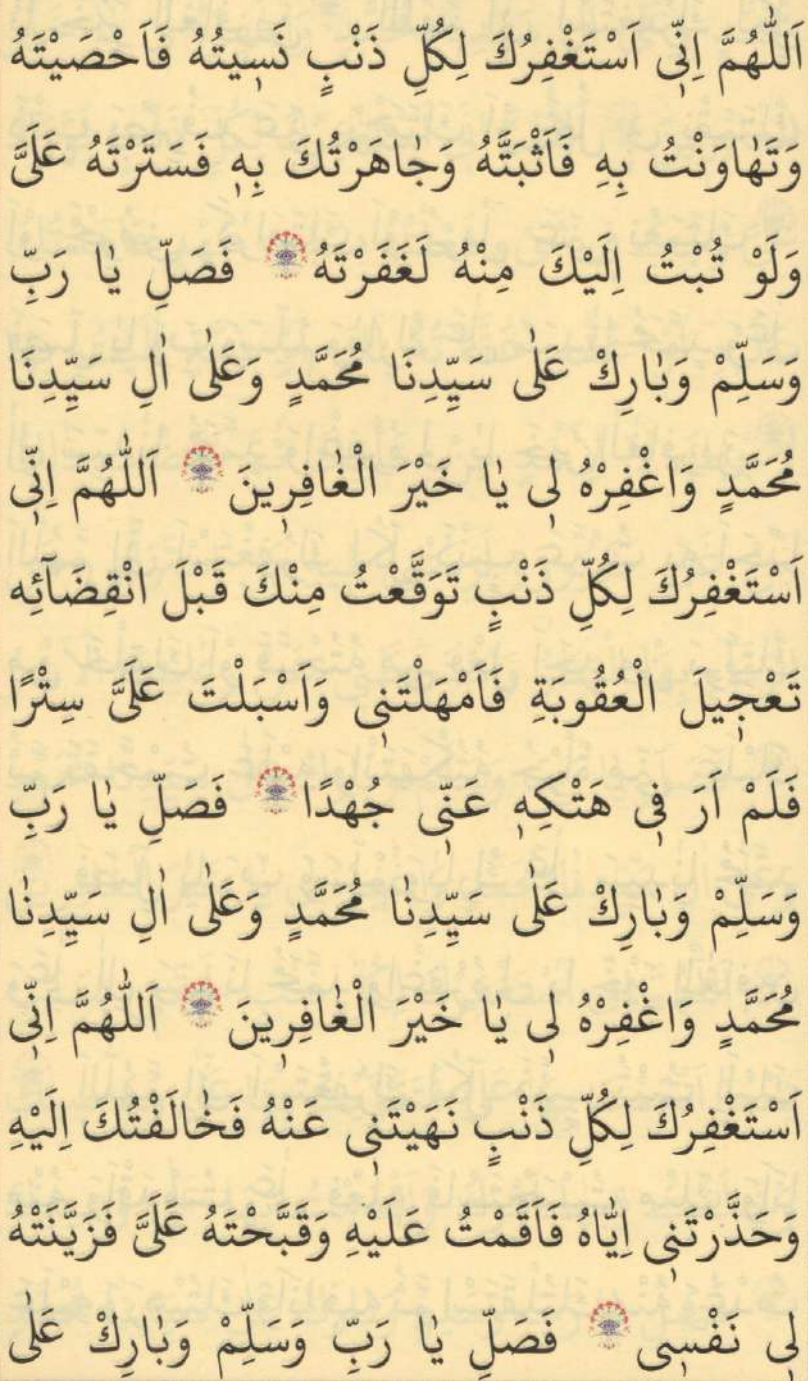 اَللّٰهُمَّ اِنّٖى اَسْتَغْفِرُكَ لِكُلِّ ذَنْبٍ نَسٖيتُهُ فَاَحْصَيْتَهُ
وَتَهَاوَنْتُ بِهِ فَاَثْبَتَّهُ وَجَاهَرْتُكَ بِهٖ فَسَتَرْتَهُ عَلَىَّ
وَلَوْ تُبْتُ اِلَيْكَ مِنْهُ لَغَفَرْتَهُ فَصَلِّ يَا رَبِّ
وَسَلِّمْ وَبَارِكْ عَلٰى سَيِّدِنَا مُحَمَّدٍ وَعَلٰى اٰلِ سَيِّدِنَا
مُحَمَّدٍ وَاغْفِرْهُ لٖى يَا خَيْرَ الْغَافِرٖينَ اَللّٰهُمَّ اِنّٖى
اَسْتَغْفِرُكَ لِكُلِّ ذَنْبٍ تَوَقَّعْتُ مِنْكَ قَبْلَ انْقِضَآئِه
تَعْجٖيلَ الْعُقُوبَةِ فَاَمْهَلْتَنٖى وَاَسْبَلْتَ عَلَىَّ سِتْرًا
فَلَمْ اَرَ فٖى هَتْكِهٖ عَنّٖى جُهْدًا فَصَلِّ يَا رَبِّ
وَسَلِّمْ وَبَارِكْ عَلٰى سَيِّدِنَا مُحَمَّدٍ وَعَلٰى اٰلِ سَيِّدِنَا
مُحَمَّدٍ وَاغْفِرْهُ لٖى يَا خَيْرَ الْغَافِرٖينَ اَللّٰهُمَّ اِنّٖى
اَسْتَغْفِرُكَ لِكُلِّ ذَنْبٍ نَهَيْتَنٖى عَنْهُ فَخَالَفْتُكَ اِلَيْهِ
وَحَذَّرْتَنٖى اِيَّاهُ فَاَقَمْتُ عَلَيْهِ وَقَبَّحْتَهُ عَلَىَّ فَزَيَّنَتْهُ
لٖى نَفْسٖى فَصَلِّ يَا رَبِّ وَسَلِّمْ وَبَارِكْ عَلٰى